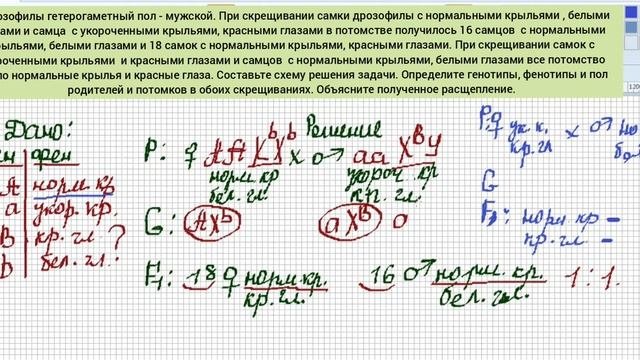 розофилы гетерогаметный пол - мужской. При скрещивании самки дрозофилы с нормальными крыльями , белыми
ами и самца с укороченными крыльями, красными глазами в потомстве получилось 16 самцов с нормальными
рыльями, белыми глазами и 18 самок с нормальными крыльями, красными глазами. При скрещивании самок с
роченными крыльями и красными глазами и самцов с нормальными крыльями, белыми глазами все потомство
ло нормальные крылья и красные глаза. Составьте схему решения задачи. Определите генотипы, фенотипы и пол
родителей и потомков в обоих скрещиваниях. Объясните полученное расщепление.
Дано:
ен фен
A норм. кр
a укор. кр.
B кр. гл ?
b бел. гл.
Решение
P: ♀ AA XᵇXᵇ x ♂ aa XᴮY
норм. кр укороч. кр
бел. гл. кр. гл.
G: AXᵇ aXᴮ
F₁: 18 ♀ норм. кр. 16 ♂ норм. кр. 1:1.
кр. гл. бел. гл.
P: ♀ ук. к. x ♂ но
кр. гл бе
G
F₁: норм кр -
кр. гл -